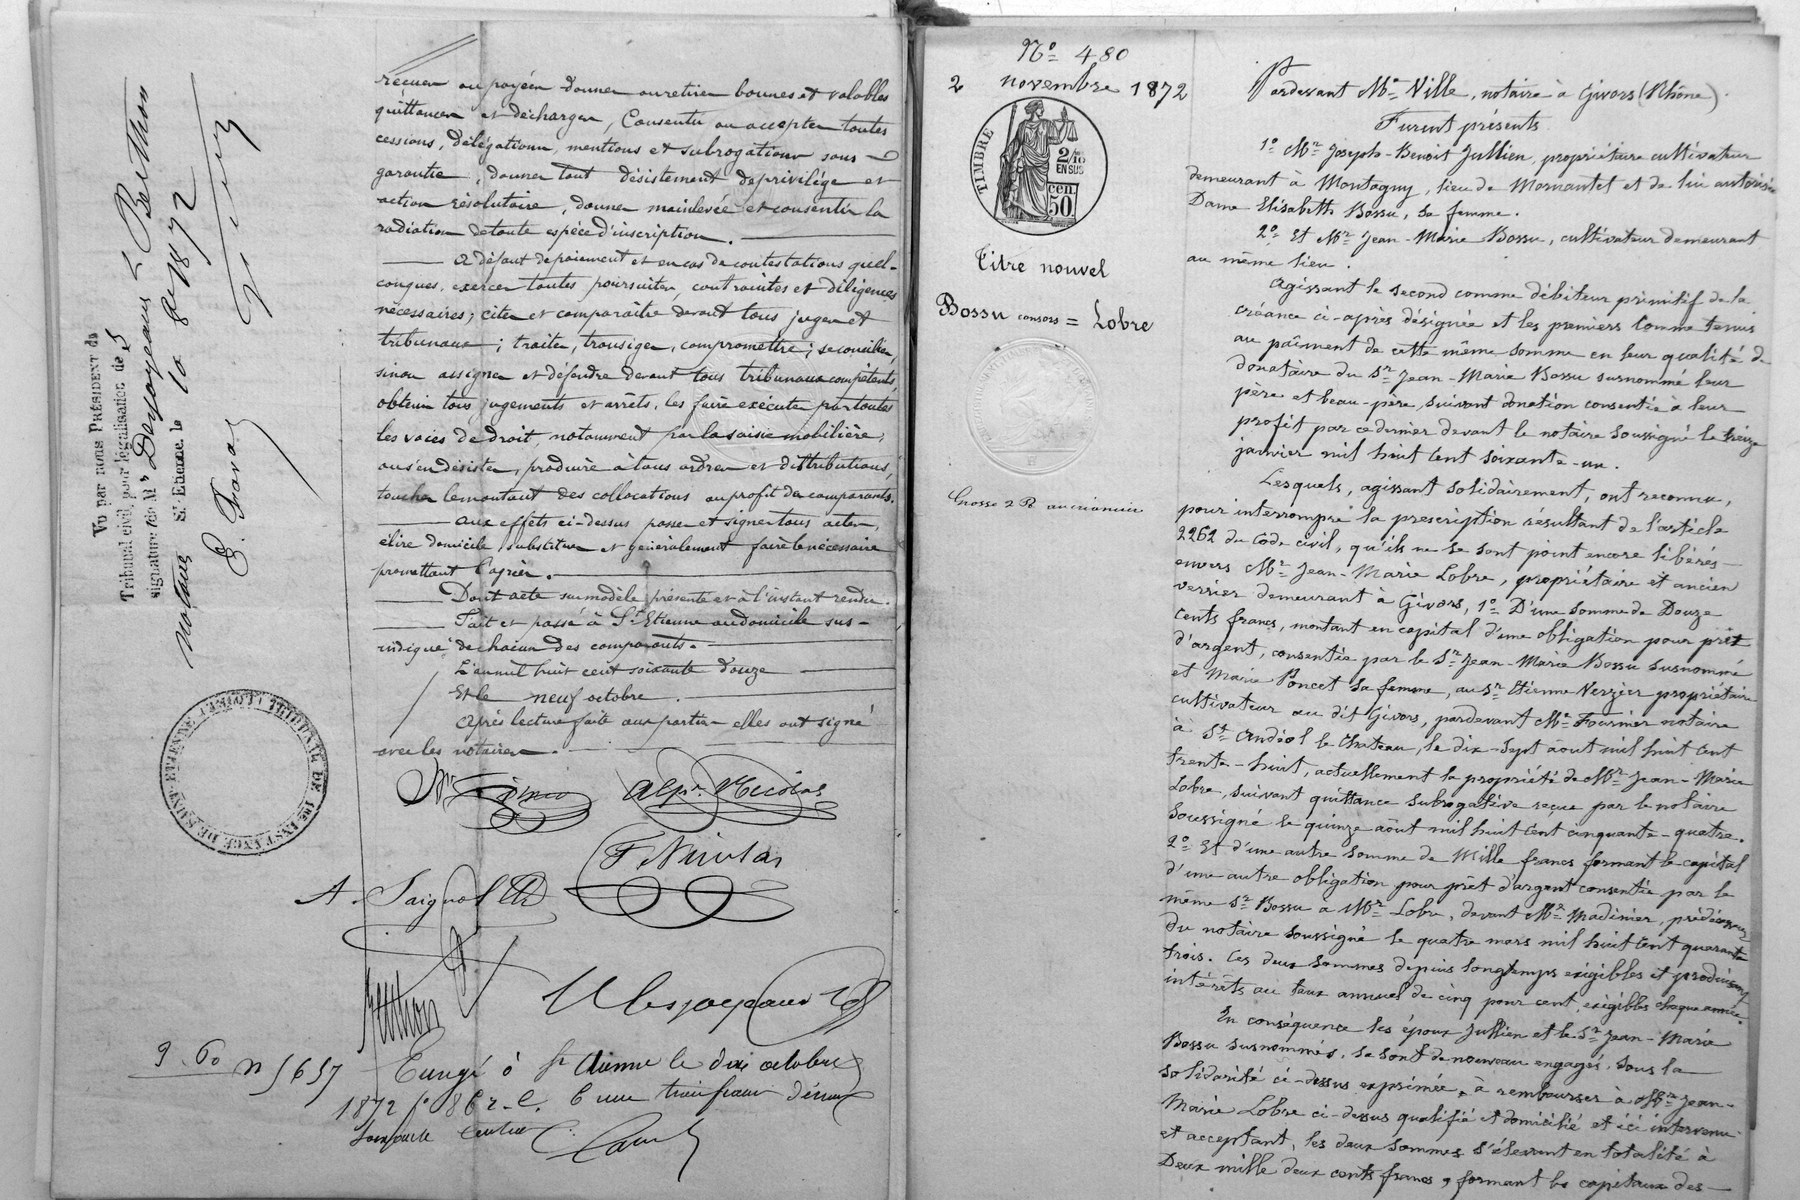 recevoir ou payer donner ou retirer bonnes et valables
quittances et décharges, Consentir ou accepter toutes
cessions, délégations, mentions et subrogations sans
garantie, donner tout désistement de privilége et
action résolutoire, donner mainlevée et consentir la
radiation de toute espèce d'inscription.
A défaut de paiement et en cas de contestations quel-
conques, exercer toutes poursuites, contraintes et diligences
nécessaires; citer et comparaître devant tous juges et
tribunaux; traiter, transiger, compromettre; se concilier,
sinon assigner et défendre devant tous tribunaux compétents,
obtenir tous jugements et arrêts, les faire exécuter par toutes
les voies de droit, notamment par la saisie mobilière,
ou s'en désister, produire à tous ordres et distributions,
toucher le montant des collocations au profit des comparants.
Aux effets ci-dessus passer et signer tous actes,
élire domicile, substituer et généralement faire le nécessaire
promettant l'agréer.
Dont acte sur modèle présenté et à l'instant rendu.
Fait et passé à St Etienne au domicile sus-
indiqué de chacun des comparants.
L'an mil huit cent soixante douze
Et le neuf octobre.
Après lecture faite aux parties elles ont signé
avec les notaires.
Alp. Nicolas
F Nicolas
A. Saignol
Berthon
9.60 N 5657
Enregé à St Etienne le dix octobre
1872 fo 86 r. C. 6
Vu par nous PRÉSIDENT du
Tribunal civil, pour légalisation de s
signature s de Mes Desjoyeaux & Berthon
notaires St-Etienne, le 10 8bre 1872
TRIBUNAL DE 1RE INSTANCE DE SAINT-ETIENNE (LOIRE)
No 480
2 novembre 1872
TIMBRE
2/10
EN SUS
50 cen
Titre nouvel
Bossu consors = Lobre
Grosse 2 R au créancier
Pardevant Me Ville, notaire à Givors (Rhône).
Furent présents
1o Mr Joseph-Benoit Jullien, propriétaire cultivateur
demeurant à Montagny, lieu de Mornantet et de lui autorisée
Dame Elisabeth Bossu, sa femme.
2o Et Mr Jean-Marie Bossu, cultivateur demeurant
au même lieu.
Agissant le second comme débiteur primitif de la
créance ci-après désignée et les premiers comme tenus
au paîment de cette même somme en leur qualité de
donataire du Sr Jean-Marie Bossu susnommé leur
père et beau-père, suivant donation consentie à leur
profit par ce dernier devant le notaire soussigné le treize
janvier mil huit cent soixante-un.
Lesquels, agissant solidairement, ont reconnu,
pour interrompre la prescription résultant de l'article
2262 du Code civil, qu'ils ne se sont point encore libérés
envers Mr Jean-Marie Lobre, propriétaire et ancien
verrier demeurant à Givors, 1o D'une somme de Douze
cents francs, montant en capital d'une obligation pour prêt
d'argent, consentie par le Sr Jean-Marie Bossu susnommé
et Marie Poncet sa femme, au Sr Etienne Verzier propriétaire
cultivateur au dit Givors, pardevant Me Fournier notaire
à St Andéol le Chateau, le dix-sept août mil huit cent
trente-huit, actuellement la propriété de Mr Jean-Marie
Lobre, suivant quittance subrogative reçue par le notaire
soussigné le quinze août mil huit cent cinquante-quatre.
2o Et d'une autre somme de Mille francs formant le capital
d'une autre obligation pour prêt d'argent consentie par le
même Sr Bossu a Mr Lobre, devant Me Madinier, prédécesseur
du notaire soussigné le quatre mars mil huit cent quarante
trois. Ces deux sommes depuis longtemps exigibles et produisant
intérêts au taux annuel de cinq pour cent, exigibles chaque année.
En conséquence les époux Jullien et le Sr Jean-Marie
Bossu susnommés, se sont de nouveau engagés, sous la
solidarité ci-dessus exprimée, à rembourser à Mr Jean-
Marie Lobre ci-dessus qualifié et domicilié et ici intervenu
et acceptant, les deux sommes s'élevant en totalité à
Deux mille deux cents francs, formant les capitaux des